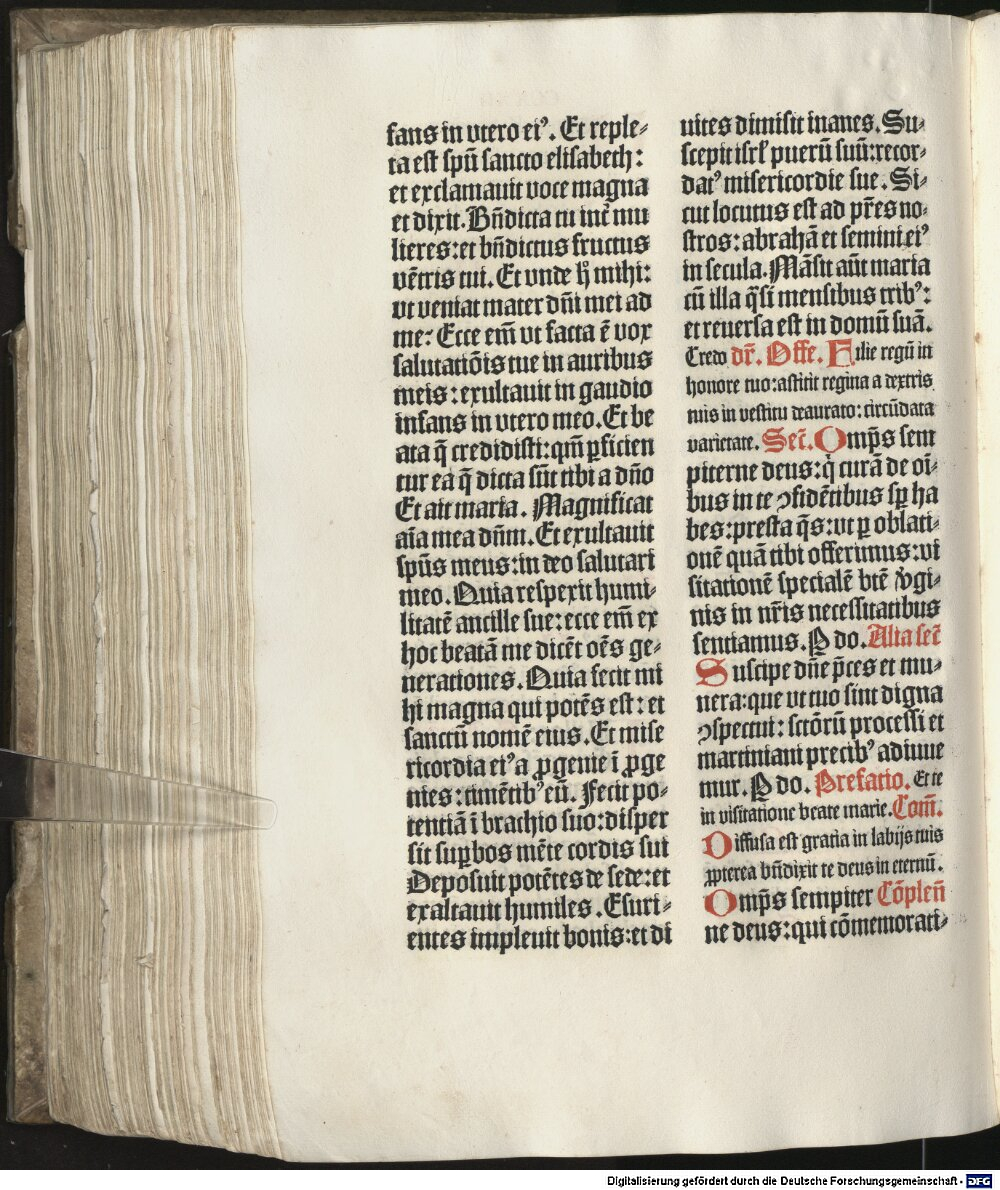 fans in vtero eiꝰ. Et reple⸗
ta est spũ sancto elisabech:
et exclamauit voce magna
et dixit. Bñdicta tu int̃ mu
lieres: et bñdictus fructus
vẽtris tui. Et vnde h̥ mihi:
vt veniat mater dñi mei ad
me? Ecce em̃ vt facta ẽ vox
salutatiõis tue in auribus
meis: exultauit in gaudio
infans in vtero meo. Et be
ata q̃ credidisti: qm̃ ꝑficien
tur ea q̃ dicta sũt tibi a dño
Et ait maria. Magnificat
aĩa mea dñm. Et exultauit
spũs meus: in deo salutari
meo. Quia respexit humi⸗
litatẽ ancille sue: ecce em̃ ex
hoc beatã me dicẽt oẽs ge⸗
nerationes. Quia fecit mi
hi magna qui potẽs est: et
sanctũ nomẽ eius. Et mise
ricordia eiꝰ a ꝓgenie ĩ ꝓge
nies: timẽtibꝰ eũ. Fecit po⸗
tentiã ĩ brachio suo: disper
sit suꝑbos mẽte cordis sui
Deposuit potẽtes de sede: et
exaltauit humiles. Esuri⸗
entes impleuit bonis: et di
uites dimisit inanes. Su⸗
scepit isrł puerũ suũ: recor⸗
datꝰ misericordie sue. Si⸗
cut locutus est ad pr̃es no⸗
stros: abrahã et semini eiꝰ
in secula. Mãsit aũt maria
cũ illa q̃si mensibus tribꝰ:
et reuersa est in domũ suã.
Credo dr̃. Offe. Filie regũ in
honore tuo: astitit regina a dextris
tuis in vestitu deaurato: circũdata
varietate. Secr̃. Omp̃s sem
piterne deus: q̇ curã de oĩ⸗
bus in te ꝯfidẽtibus sꝑ ha
bes: presta q̃s: ut ꝑ oblati⸗
onẽ quã tibi offerimus: vi
sitationẽ specialẽ btẽ v̇gi⸗
nis in nr̃is necessitatibus
sentiamus. P do. Alia secr̃
Suscipe dñe p̃ces et mu⸗
nera: que ut tuo sint digna
ꝯspectui: sctõrũ processi et
martiniani precibꝰ adiuue
mur. P do. Prefatio. Et te
in visitatione beate marie. Com̃.
Diffusa est gratia in labijs tuis
ꝓpterea bñdixit te deus in eternũ.
Omp̃s sempiter Cõpleñ
ne deus: qui cõmemorati⸗
Digitalisierung gefördert durch die Deutsche Forschungsgemeinschaft - DFG